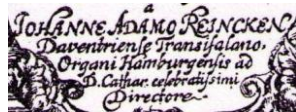 a
JOHANNE ADAMO REINCKEN
Daventriense Transisalano,
Organi Hamburgensis ad
D. Cathar. celebratissimi
Directore